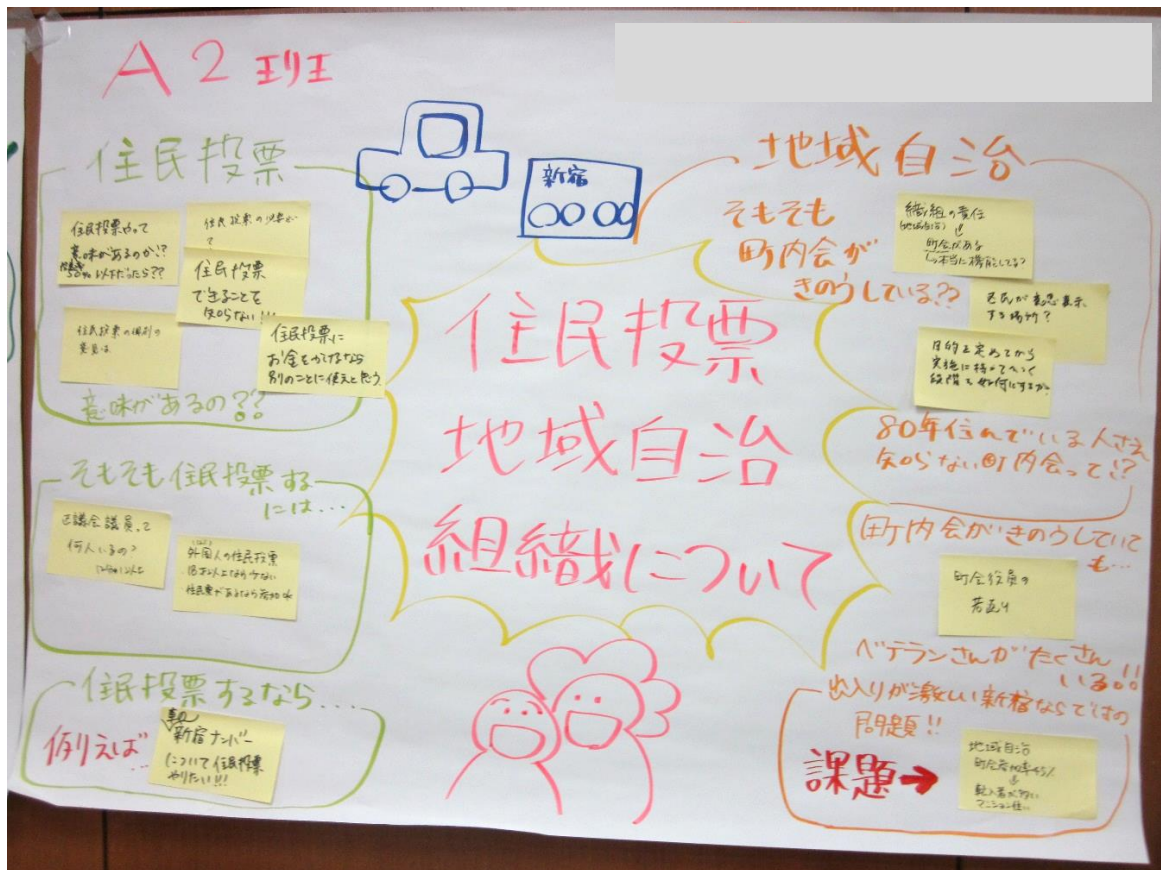 A2班
住民投票
住民投票やって
意味があるのか!?
50%以下だったら??
住民投票の
住民投票
できることを
知らない!!!
住民投票の個別の
住民投票に
お金をかけるなら
別のことに使えと思う。
意味があるの??
そもそも住民投票する
には…
区議会議員って
何人いるの?
外国人の住民投票
18才以上なら
住民票があるなら
住民投票するなら…
例えば…
車の
新宿ナンバー
について住民投票
やりたい!!!
新宿
○○ ○○
住民投票
地域自治
組織について
地域自治
そもそも
町内会が
きのうしている??
織組の責任
(地域自治)
町会がある
↳本当に機能してる?
区民が意思表示
する場所?
目的を定めてから
実施に持っていく
段階を如何にするか。
80年住んでいる人さえ
知らない町内会って!?
町内会がきのうしていて
も…
町会役員の
若返り
ベテランさんがたくさん
いる!!
出入りが激しい新宿ならではの
問題!!
課題→
地域自治
転入者が多い
マンション住い